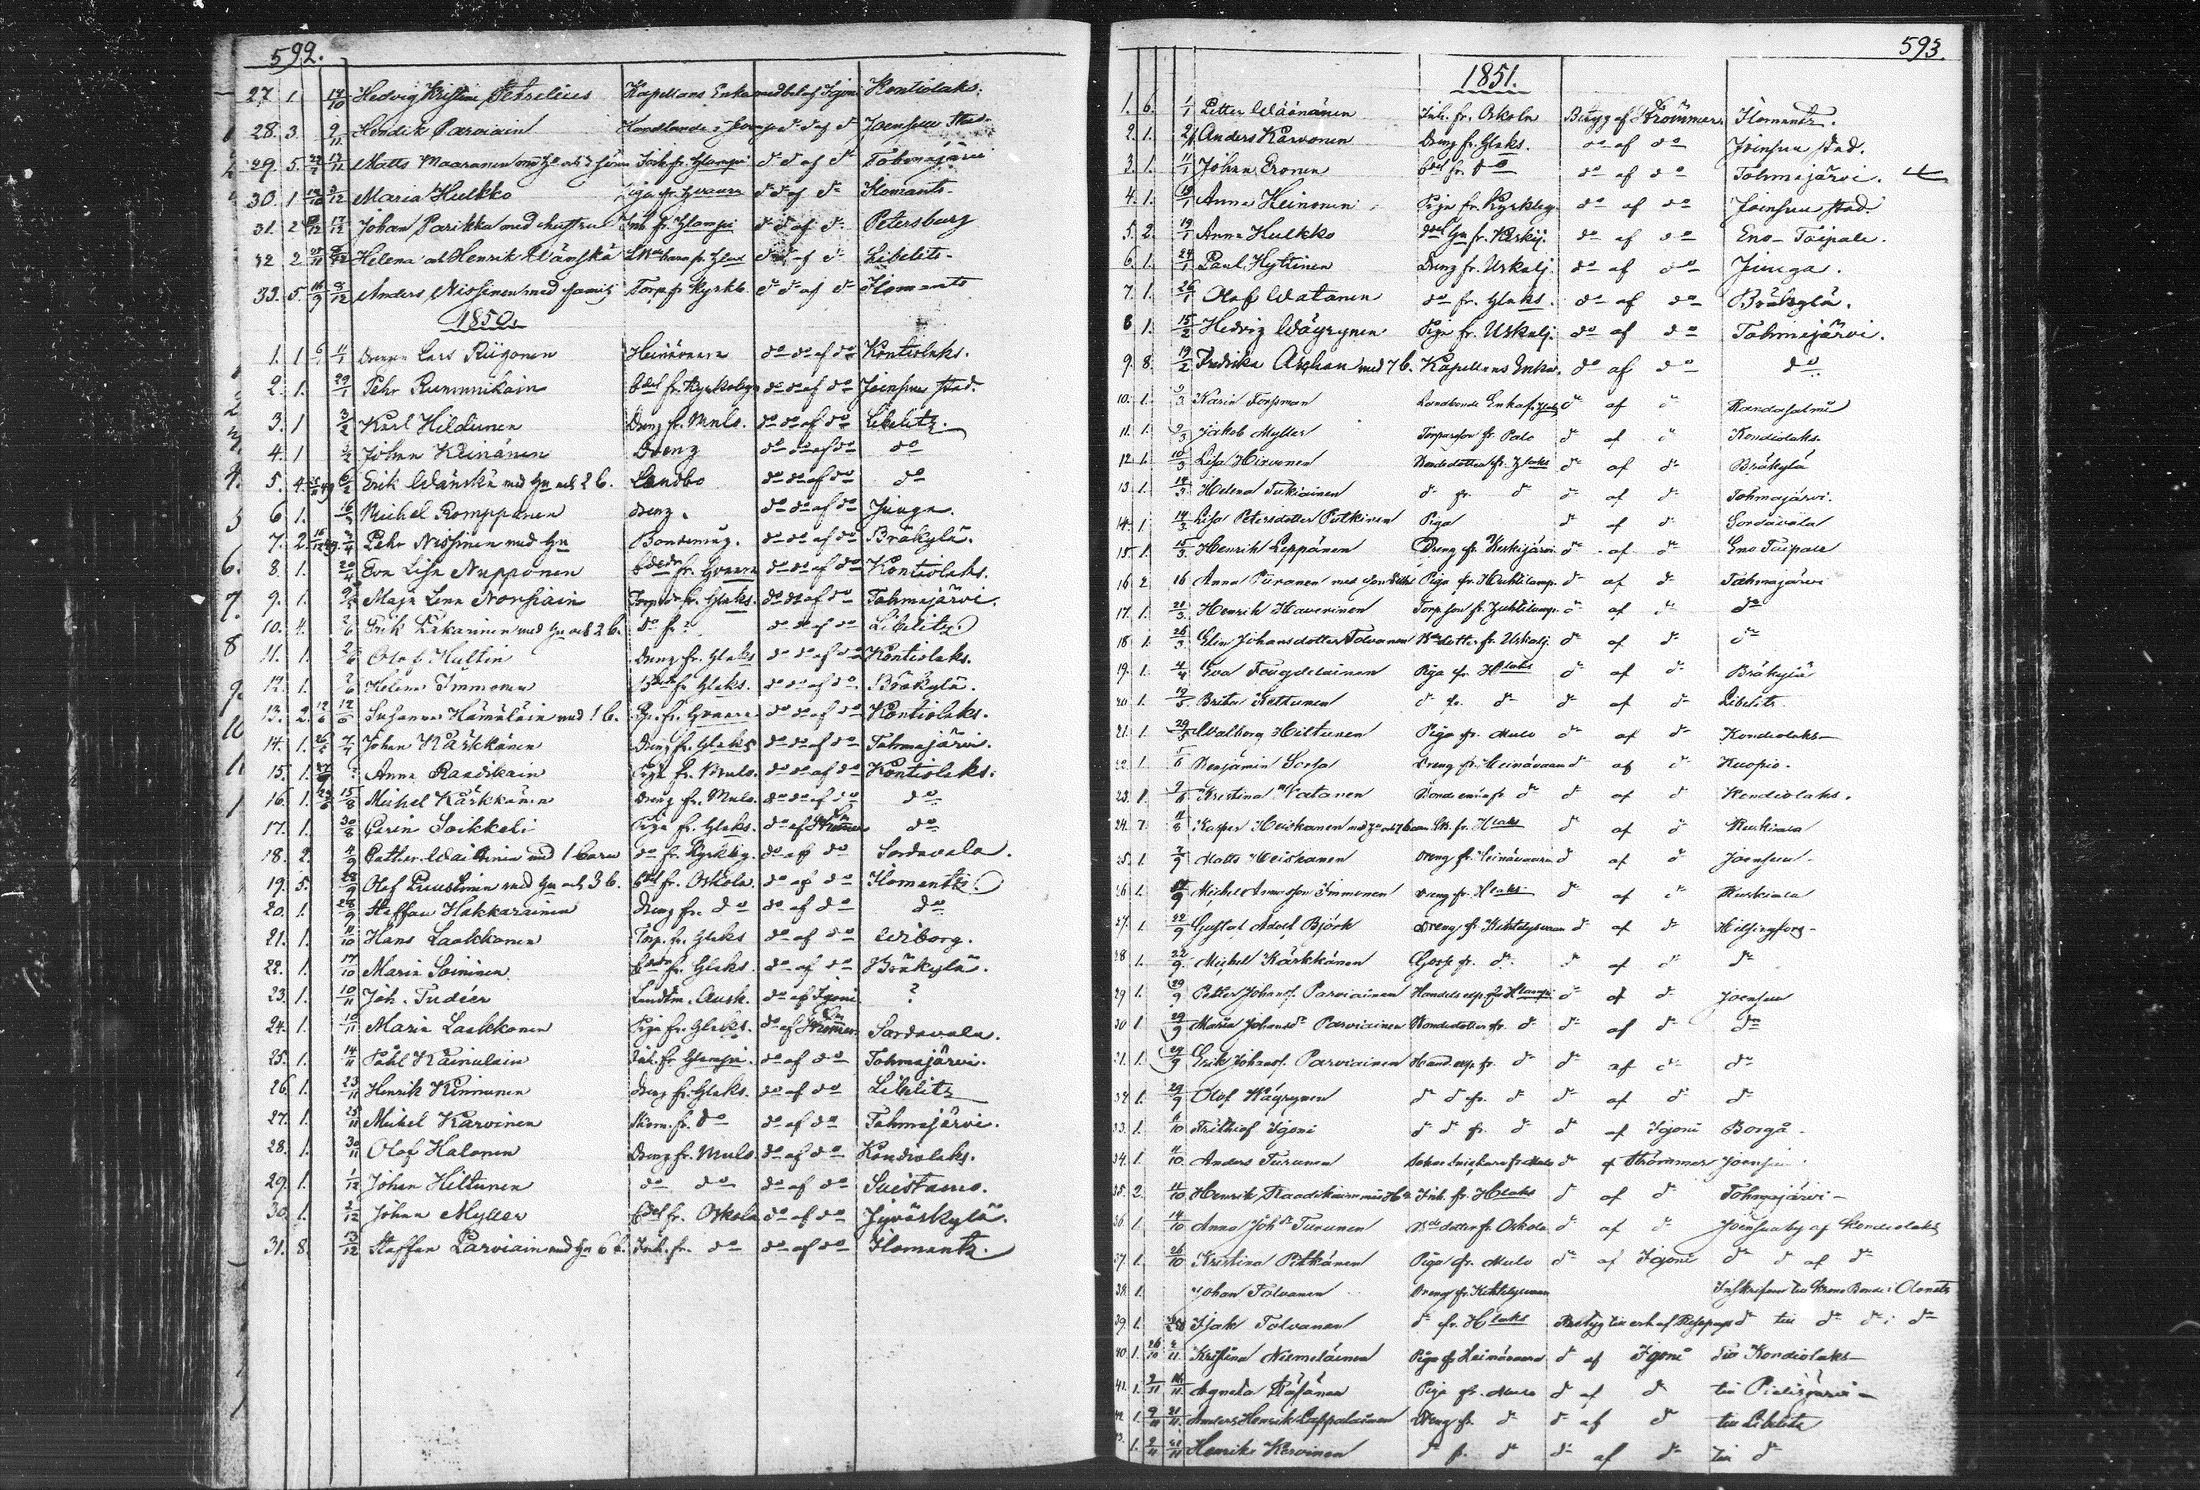 592.
27. 1 14/10 Hedvig Kristina Petrelius Kapellans Enka med bet af Igoni Kontiolaks.
28. 3. 9/11 Hendik Parviain Handlande d:o d:o af d:o Joensuu Stad
29. 5 Matts Maaranen Inh. fr. Hlampi d:o d:o af d:o Tohmajärvi
30. 1 Maria Hulkko Piga fr. Hvaara d:o d:o af d:o Ilomants
31. 2 Johan Parikka med hustru Inh fr. Hlampi d:o d:o af d:o Petersburg
32 2 Helena och Henrik Wänskä d:o d:o af d:o Libelits
33. 5. Anders Nissinen med familj Torp fr Kyrkb. d:o d:o af d:o Ilomants
1850.
1. 1 11/1 Drengen Lars Riigonen Heinävaara d:o d:o af d:o Kontiolaks.
2. 1. 29/1 Pehr Rummukain fr. Kyrkobyn d:o d:o af d:o Joensuu stad.
3. 1 3/2 Karl Hildunen Dreng fr. Mulo. d:o d:o af d:o Libelitz.
4. 1 Johan Keinänen Dreng d:o d:o af d:o d:o
5. 4. Erik Wänskä med Hu och 2 b. Landbo d:o d:o af d:o d:o
6 1. Michel Romppanen Dreng. d:o d:o af d:o Jiuga.
7. 2. Pehr Nissinen med Hu Bondemåg. d:o d:o af d:o Bräkylä.
8. 1. 20/4 Eva Lisa Nupponen fr. Hvaara d:o d:o af d:o Kontiolaks.
9. 1. Maja Lena Nousiain fr. Hlaks. d:o d:o af d:o Tohmajärvi.
10. 4. Erik Läkaninen med Hu och 2 b. d:o fr. d:o d:o af d:o Libelitz.
11. 1. 2/6 Olof Hultin Dreng fr. Hlaks d:o d:o af d:o Kontiolaks.
12. 1. Helena Immonen fr Hlaks. d:o d:o af d:o Bräkylä.
13. 2. 12/6 12/6 Susanna Hämäläin med 1 b. fr. Hvaara d:o d:o af d:o Kontiolaks.
14. 1. Johan Kärkkänen Dreng fr. Hlaks d:o d:o af d:o Tohmajärvi.
15. 1. ? Anna Raadikain Piga fr. Mulo. d:o d:o af d:o Kontiolaks.
16. 1. 15/8 Michel Kärkkänen Dreng fr. Mulo. d:o d:o af d:o d:o
17. 1. 30/8 Carin Soikkeli Piga fr. Hlaks. d:o af Strömmer d:o
18. 2. 4/9 Cathr. Waittinen med 1 barn d:o fr. Kyrkby. d:o af d:o Sordavala.
19. 5. 28/9 Olof Puustinen med Hu och 3 b. fr. Oskola. d:o af d:o Ilomants.
20. 1. 28/9 Staffan Hakkarainen Dreng fr. d:o d:o af d:o d:o
21. 1. 11/10 Hans Laakkonen Torp. fr. Hlaks d:o af d:o Wiborg.
22. 1. 17/10 Maria Soininen fr. Hlaks. d:o af d:o Bräkylä.
23. 1. 10/11 Joh. Tudéer Landtm. Ausk. d:o af Igoni ?
24. 1. 10/11 Maria Laakkonen Piga fr. Hlaks. d:o af Strömmer Sordavala.
25. 1. 14/11 Påhl Kainulain Inh. fr Hlampi. d:o af d:o Tohmajärvi.
26. 1. 23/11 Henrik Kinnunen Dreng fr. Hlaks. d:o af d:o Libelitz
27. 1. 25/11 Michel Karvinen Skom. fr. d:o d:o af d:o Tohmajärvi.
28. 1. 30/11 Olof Halonen Dreng fr. Mulo d:o af d:o Kondiolaks.
29. 1. 1/12 Johan Hiltunen d:o d:o d:o af d:o Suistamo.
30. 1. 2/12 Johan Myller fr. Oskola d:o af d:o Jyväskylä.
31. 8. 13/12 Staffan Parviain med Hu 6 b. Inh. fr. d:o d:o af d:o Ilomants.
593.
1851.
1. 6. 1/1 Petter Wäänänen Inh. fr. Oskola Betyg af Strömmer Ilomants.
2. 1. Anders Karvonen Dreng fr. Hlaks. d:o af d:o Joensuu stad.
3. 1. 11/1 Johan Eronen fr. d:o d:o af d:o Tohmajärvi.
4. 1. 19/1 Anna Heinonen Piga fr. Kyrkby. d:o af d:o Joensuu stad.
5. 2. 19/1 Anna Hulkko fr. Keskij. d:o af d:o Eno-Taipale.
6. 1. 24/1 Paul Hyttinen Dreng fr. Uskalj. d:o af d:o Jiuga.
7. 1. 26/1 Olof Watanen d:o fr. Hlaks. d:o af d:o Bräkylä.
8 1. 15/2 Hedvig Wäyrynen Piga fr. Uskalj. d:o af d:o Tohmajärvi.
9. 8. 19/2 Fredrika Arghan med 7 b. Kapellans Enka. d:o af d:o d:o
10. 1. Karin Torpman Landbonde Enka fr. Hlaks d:o af d:o Randasalmi
11. 1. Jakob Myller Torpareson fr. Palo d:o af d:o Kondiolaks.
12 1. 10/3 Lisa Hirvonen Bondedotter fr. Hlaks d:o af d:o Bräkylä
13. 1. Helena Tukiainen d:o fr. d:o d:o af d:o Tohmajärvi.
14. 1 14/3 Lisa Petersdotter Pitkänen Piga d:o af d:o Sordavala
15. 1. 15/3 Henrik Leppänen Dreng fr. Keskijärvi d:o af d:o Eno Taipale
16 2 16 Anna Piiranen med son Piga fr. Huhtilamp. d:o af d:o Tohmajärvi
17. 1. 21/3 Henrik Haverinen Torp son fr. Huhtilamp. d:o af d:o d:o
18 1. 26/3 Elin Johansdotter Tolvanen dotter fr. Uskalj. d:o af d:o d:o
19. 1. 4/4 Eva Tougdelainen Piga fr. Hlaks d:o af d:o Bräkylä
20 1. 19/5 Brita Kettunen d:o fr. d:o d:o af d:o Libelitz.
21. 1. 29/5 Walborg Hiltunen Piga fr. Mulo d:o af d:o Kondiolaks
22. 1. Benjamin Sorsa Dreng fr. Heinävaara d:o af d:o Kuopio.
23. 1 Kristina Watanen fr d:o d:o af d:o Kondiolaks.
24. 7. Kasper Heiskanen fr. Hlaks d:o af d:o Ruskiala
25. 1. Matts Heiskanen Dreng fr. Heinävaara d:o af d:o Joensuu
26 1. Michel Immonen Dreng fr. Hlaks d:o af d:o Ruskiala
27. 1 22/9 Gustaf Adolf Björk Dreng fr Kihtelysvaara d:o af d:o Helsingfors
28 1. 22/9 Michel Kärkkänen fr. d:o d:o af d:o d:o
29 1. 29/9 Petter Johans. Parviainen Handels exp. fr Hlampi d:o af d:o Joensuu
30 1. 29/9 Maria Johansd:r Parviainen Bondedotter fr. d:o d:o af d:o d:o
31. 1. 29/9 Erik Johans. Parviainen Hand. exp. fr. d:o d:o af d:o d:o
32. 1. 29/9 Olof Wäyrynen d:o d:o fr. d:o d:o af d:o d:o
33. 1. Frithiof Igoni d:o d:o fr. d:o d:o af Igoni Borgå.
34. 1. 11/10 Anders Turunen fr Mulo d:o af Strömmer Joensuu
35. 2. 11/10 Henrik Raadikain Inh. fr. Hlaks d:o af d:o Tohmajärvi
36 1. 14/10 Anna Joh d:r Turunen dotter fr. Oskola d:o af d:o Joensuu by af Kondiolaks
37. 1. 26/10 Kristina Pitkänen Piga fr. Mulo d:o af Igoni d:o d:o af d:o
38. 1. Johan Tolvanen Dreng fr Kihtelysvaara Inskrifven till Krono Bonde i Olonets
39. 1. Isak Tolvanen d:o fr. Hlaks Betyg till erh af Respass d:o till d:o d:o i d:o
40. 1. 26/10 Kristina Niemeläinen Piga fr Heinävaara d:o af Igoni till Kondiolaks
41. 1. Agneta Räsänen Piga fr. Mulo d:o af d:o till Pielisjärvi
42 1. Anders Henrik Lappalainen Dreng fr. d:o d:o af d:o till Libelitz
1. Henrik Kervinen d:o fr. d:o d:o af d:o till d:o